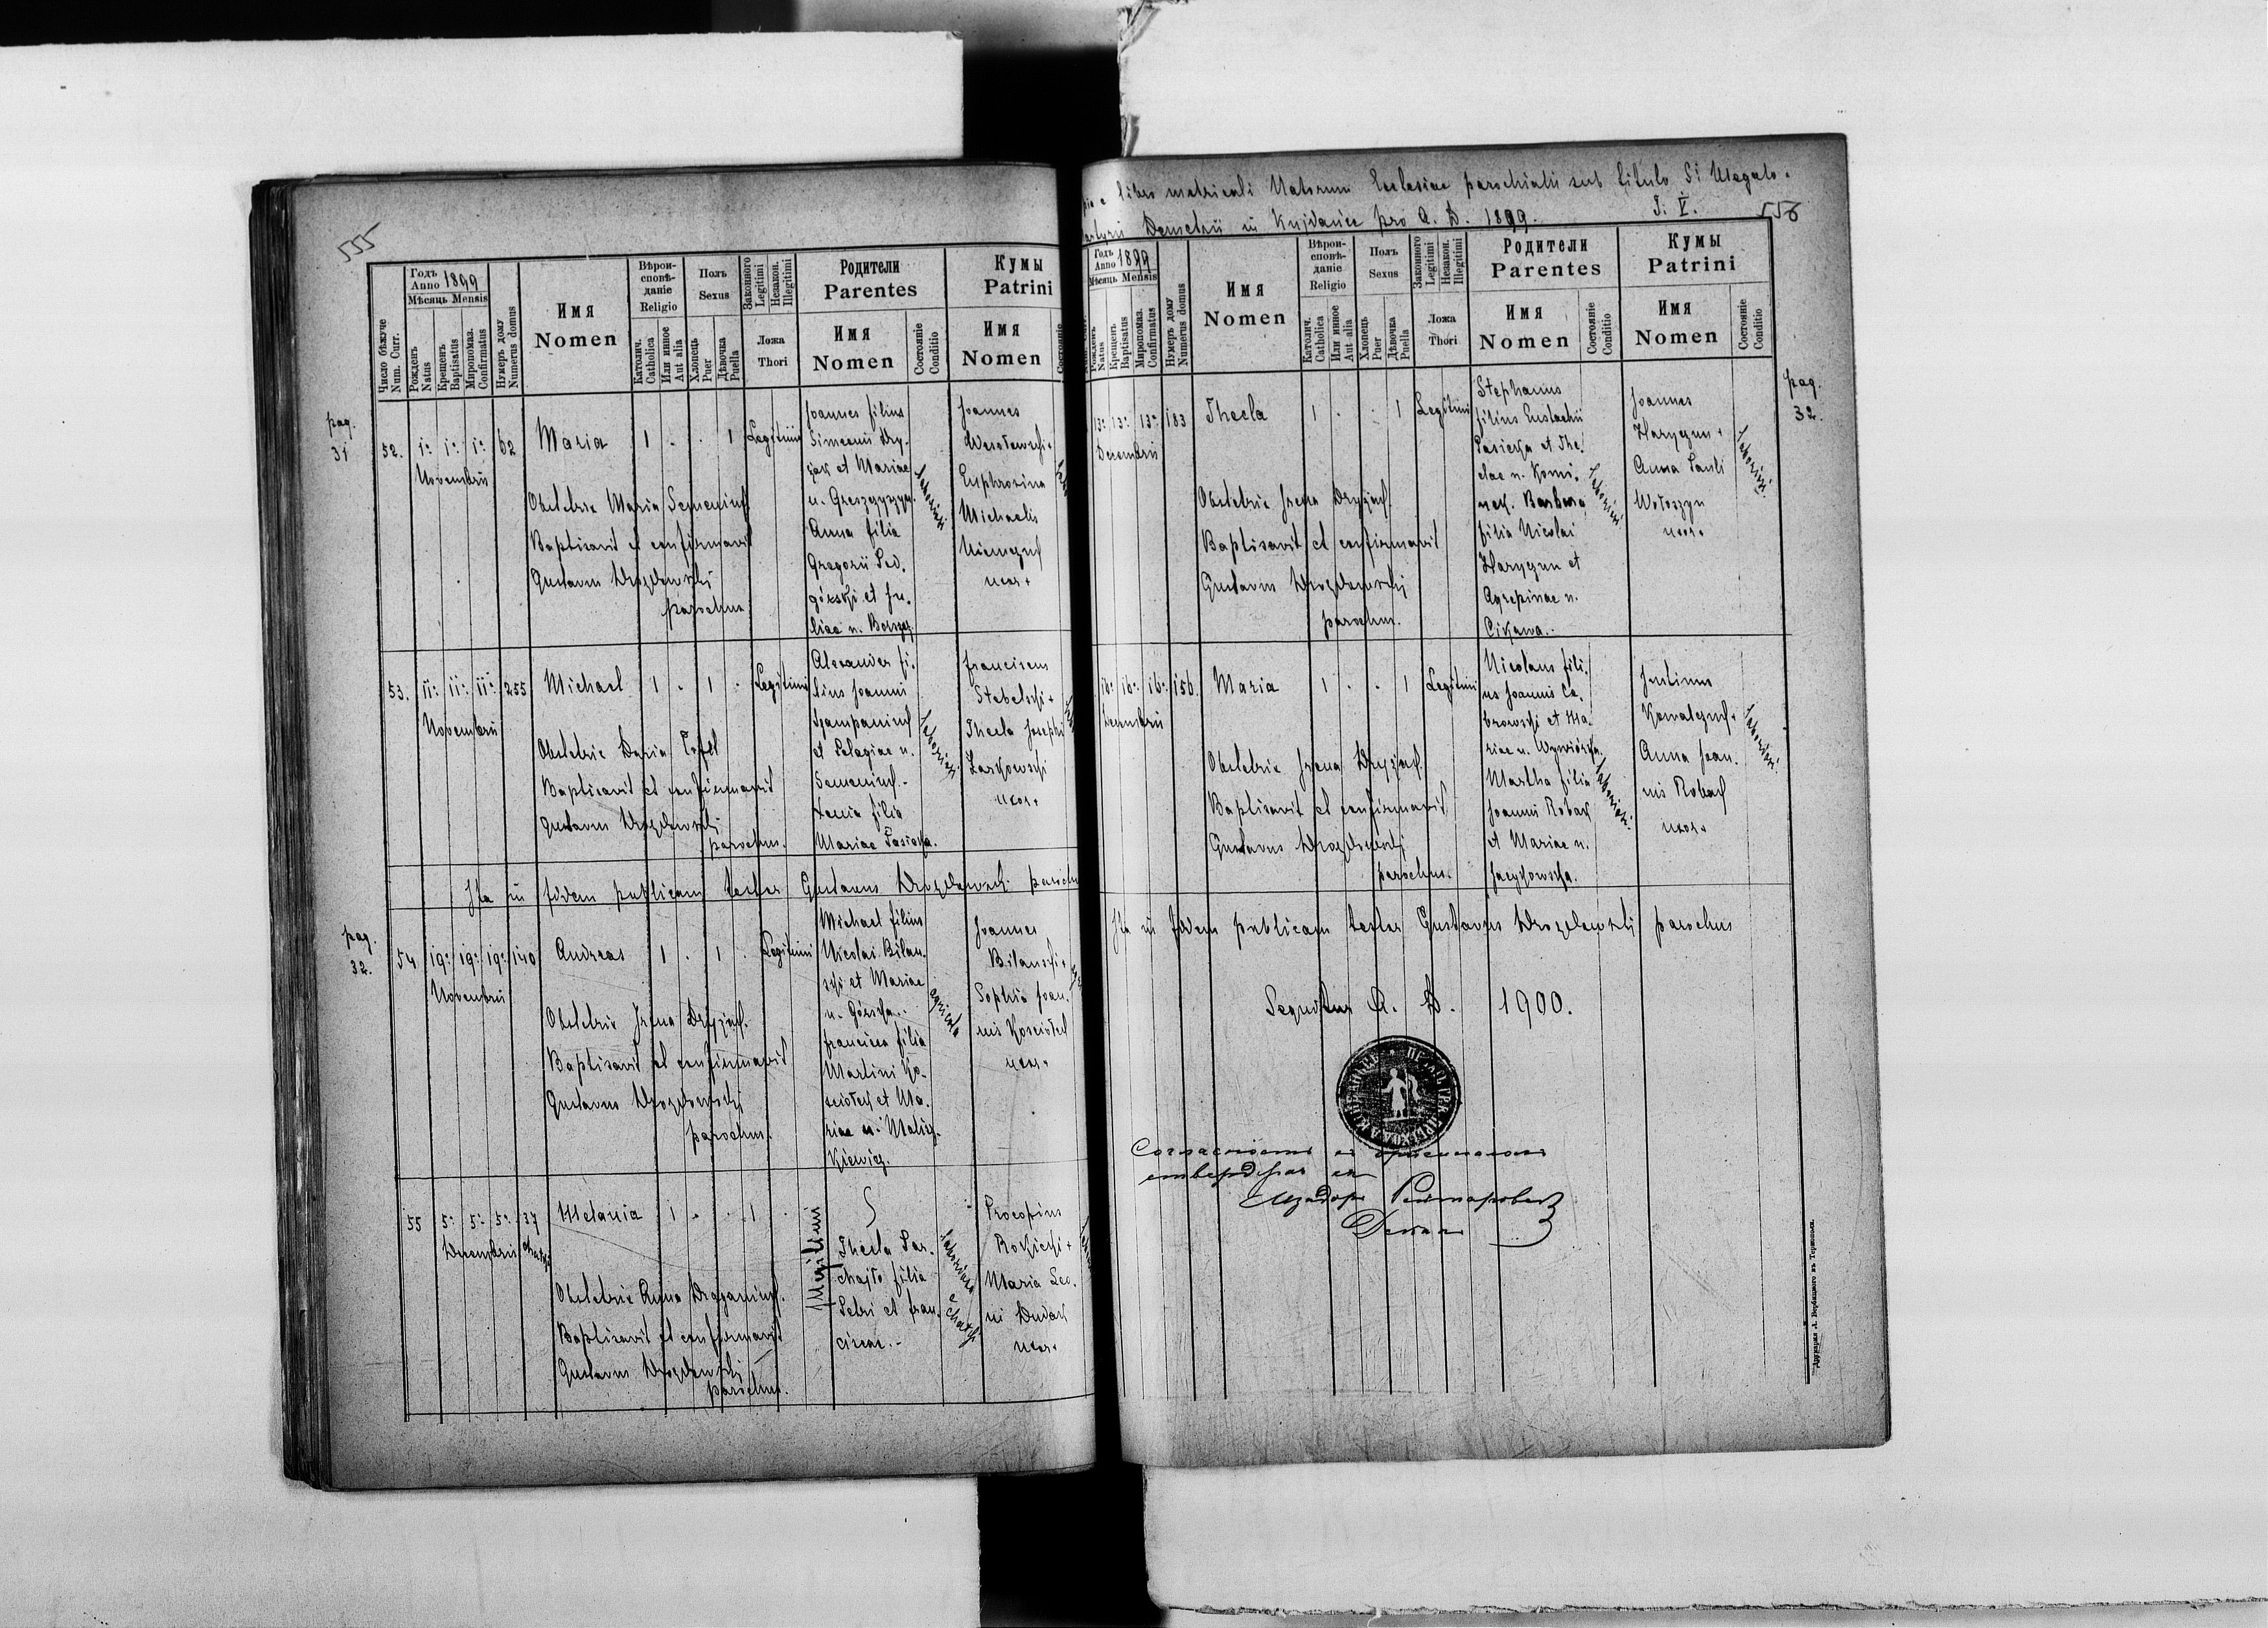 555
Годъ Anno 1899
Мѣсяць Mensis
Число бѣжуче Num. Curr.
Рожденъ Natus
Крещенъ Baptisatus
Миропомаз. Confirmatus
Нумеръ дому Numerus domus
Имя Nomen
Вѣрои-сповѣ-даніе Religio
Католич. Catholica
Или инное Aut alia
Полъ Sexus
Хлопець Puer
Дѣвочка Puella
Законного Legitimi
Незакон. Illegitimi
Ложа Thori
Родители Parentes
Имя Nomen
Состояніе Conditio
Кумы Patrini
Имя Nomen
Состояніе
pag. 31
52. 1. 1. 1. 62 Maria 1 . . 1 Legitimi
Novembris
Obstetrix Maria Semeniuk
Baptisavit et confirmavit
Gustavus Drozdowski
parochus.
Joannes filius
Simeonis Dry-
żak et Mariae
Anna filia
Gregorii Pod-
górski et Ju-
liae n.
Joannes
Euphrosina
Michaelis
uxor
53. 11. 11. 11. 255 Michael 1 . 1 . Legitimi
Novembris
Obstetrix Daria
Baptisavit et confirmavit
Gustavus Drozdowski
parochus.
Alexander fi-
lius Joannis
et Pelagiae n.
Semeniuk.
filia
Mariae Pasieka.
Franciscus
Stebelski
Thecla Josephi
Laskowski
uxor
Ita in fidem publicam testor Gustavus Drozdowski
pag. 32.
54 19. 19. 19. 140 Andreas 1 . 1 . Legitimi
Novembris
Obstetrix Irena Dryżak.
Baptisavit et confirmavit
Gustavus Drozdowski
parochus.
Michael filius
Nicolai Bilan-
ski et Mariae
n. Górska.
Francisca filia
Martini Ko-
sciołek et Ma-
riae n. Malisz-
kiewicz.
agricola
Joannes
Bilanski
Sophia Joan-
nis Kosciołek
uxor
55 5. 5. 5. 37 Melania 1 . . 1 .
Decembris
Illegitimi
Obstetrix Anna
Baptisavit et confirmavit
Gustavus Drozdowski
parochus.
Thecla Par-
chajło filia
Petri et Fran-
ciscae.
Procopius
Rokicki
Maria Leo-
ni Dudak
uxor
libro matricali Natorum Ecclesiae parochialis sub titulo Si Megalo-
Demetrii in Kujdańce pro A. D. 1899. T. V. 556
Годъ Anno 1899
Мѣсяць Mensis
Рожденъ Natus
Крещенъ Baptisatus
Миропомаз. Confirmatus
Нумеръ дому Numerus domus
Имя Nomen
Вѣрои-сповѣ-даніе Religio
Католич. Catholica
Или инное Aut alia
Полъ Sexus
Хлопець Puer
Дѣвочка Puella
Законного Legitimi
Незакон. Illegitimi
Ложа Thori
Родители Parentes
Имя Nomen
Состояніе Conditio
Кумы Patrini
Имя Nomen
Состояніе Conditio
pag. 32.
13. 13. 13. 183 Thecla 1 . . 1 Legitimi
Decembris
Obstetrix Irena Dryżak
Baptisavit et confirmavit
Gustavus Drozdowski
parochus.
Stephanus
filius Eustachii
Pasieka et The-
clae n. Komi-
nek. Barbara
filia Nicolai
Harygun et
Agrepinae n.
Cikawa.
Joannes
Harygun
Anna Pauli
Wołoszyn
uxor
16. 16. 16. 156. Maria 1 . . 1 Legitimi
Decembris
Obstetrix Irena Dryżak
Baptisavit et confirmavit
Gustavus Drozdowski
parochus.
Nicolaus fili-
us Joannis Ca-
browski et Ma-
riae n.
Martha filia
Joannis Robak
et Mariae n.
Jaczkowska.
Justinus
Kowalczuk
Anna Joan-
nis Robak
uxor
Ita in fidem publicam testor Gustavus Drozdowski parochus
Sequitur A. D. 1900.
Друкарня Л. Вербицкого въ Тернополи.